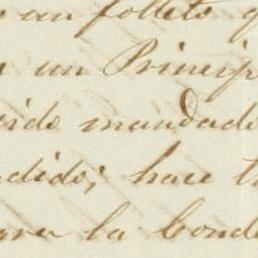 un folleto
un Princip
ido mandado
dido; hace t
la bond